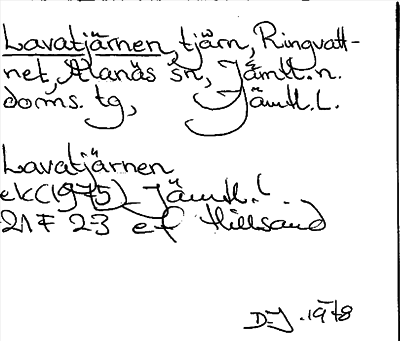 Lavatjärnen, tjärn, Ringvatt-
net, Alanäs sn, Jämtl. n.
doms. tg, Jämtl. L.
Lavatjärnen
ek (1975) Jämtl. L.
21F 23 ef Hillsand
D-J. 1978